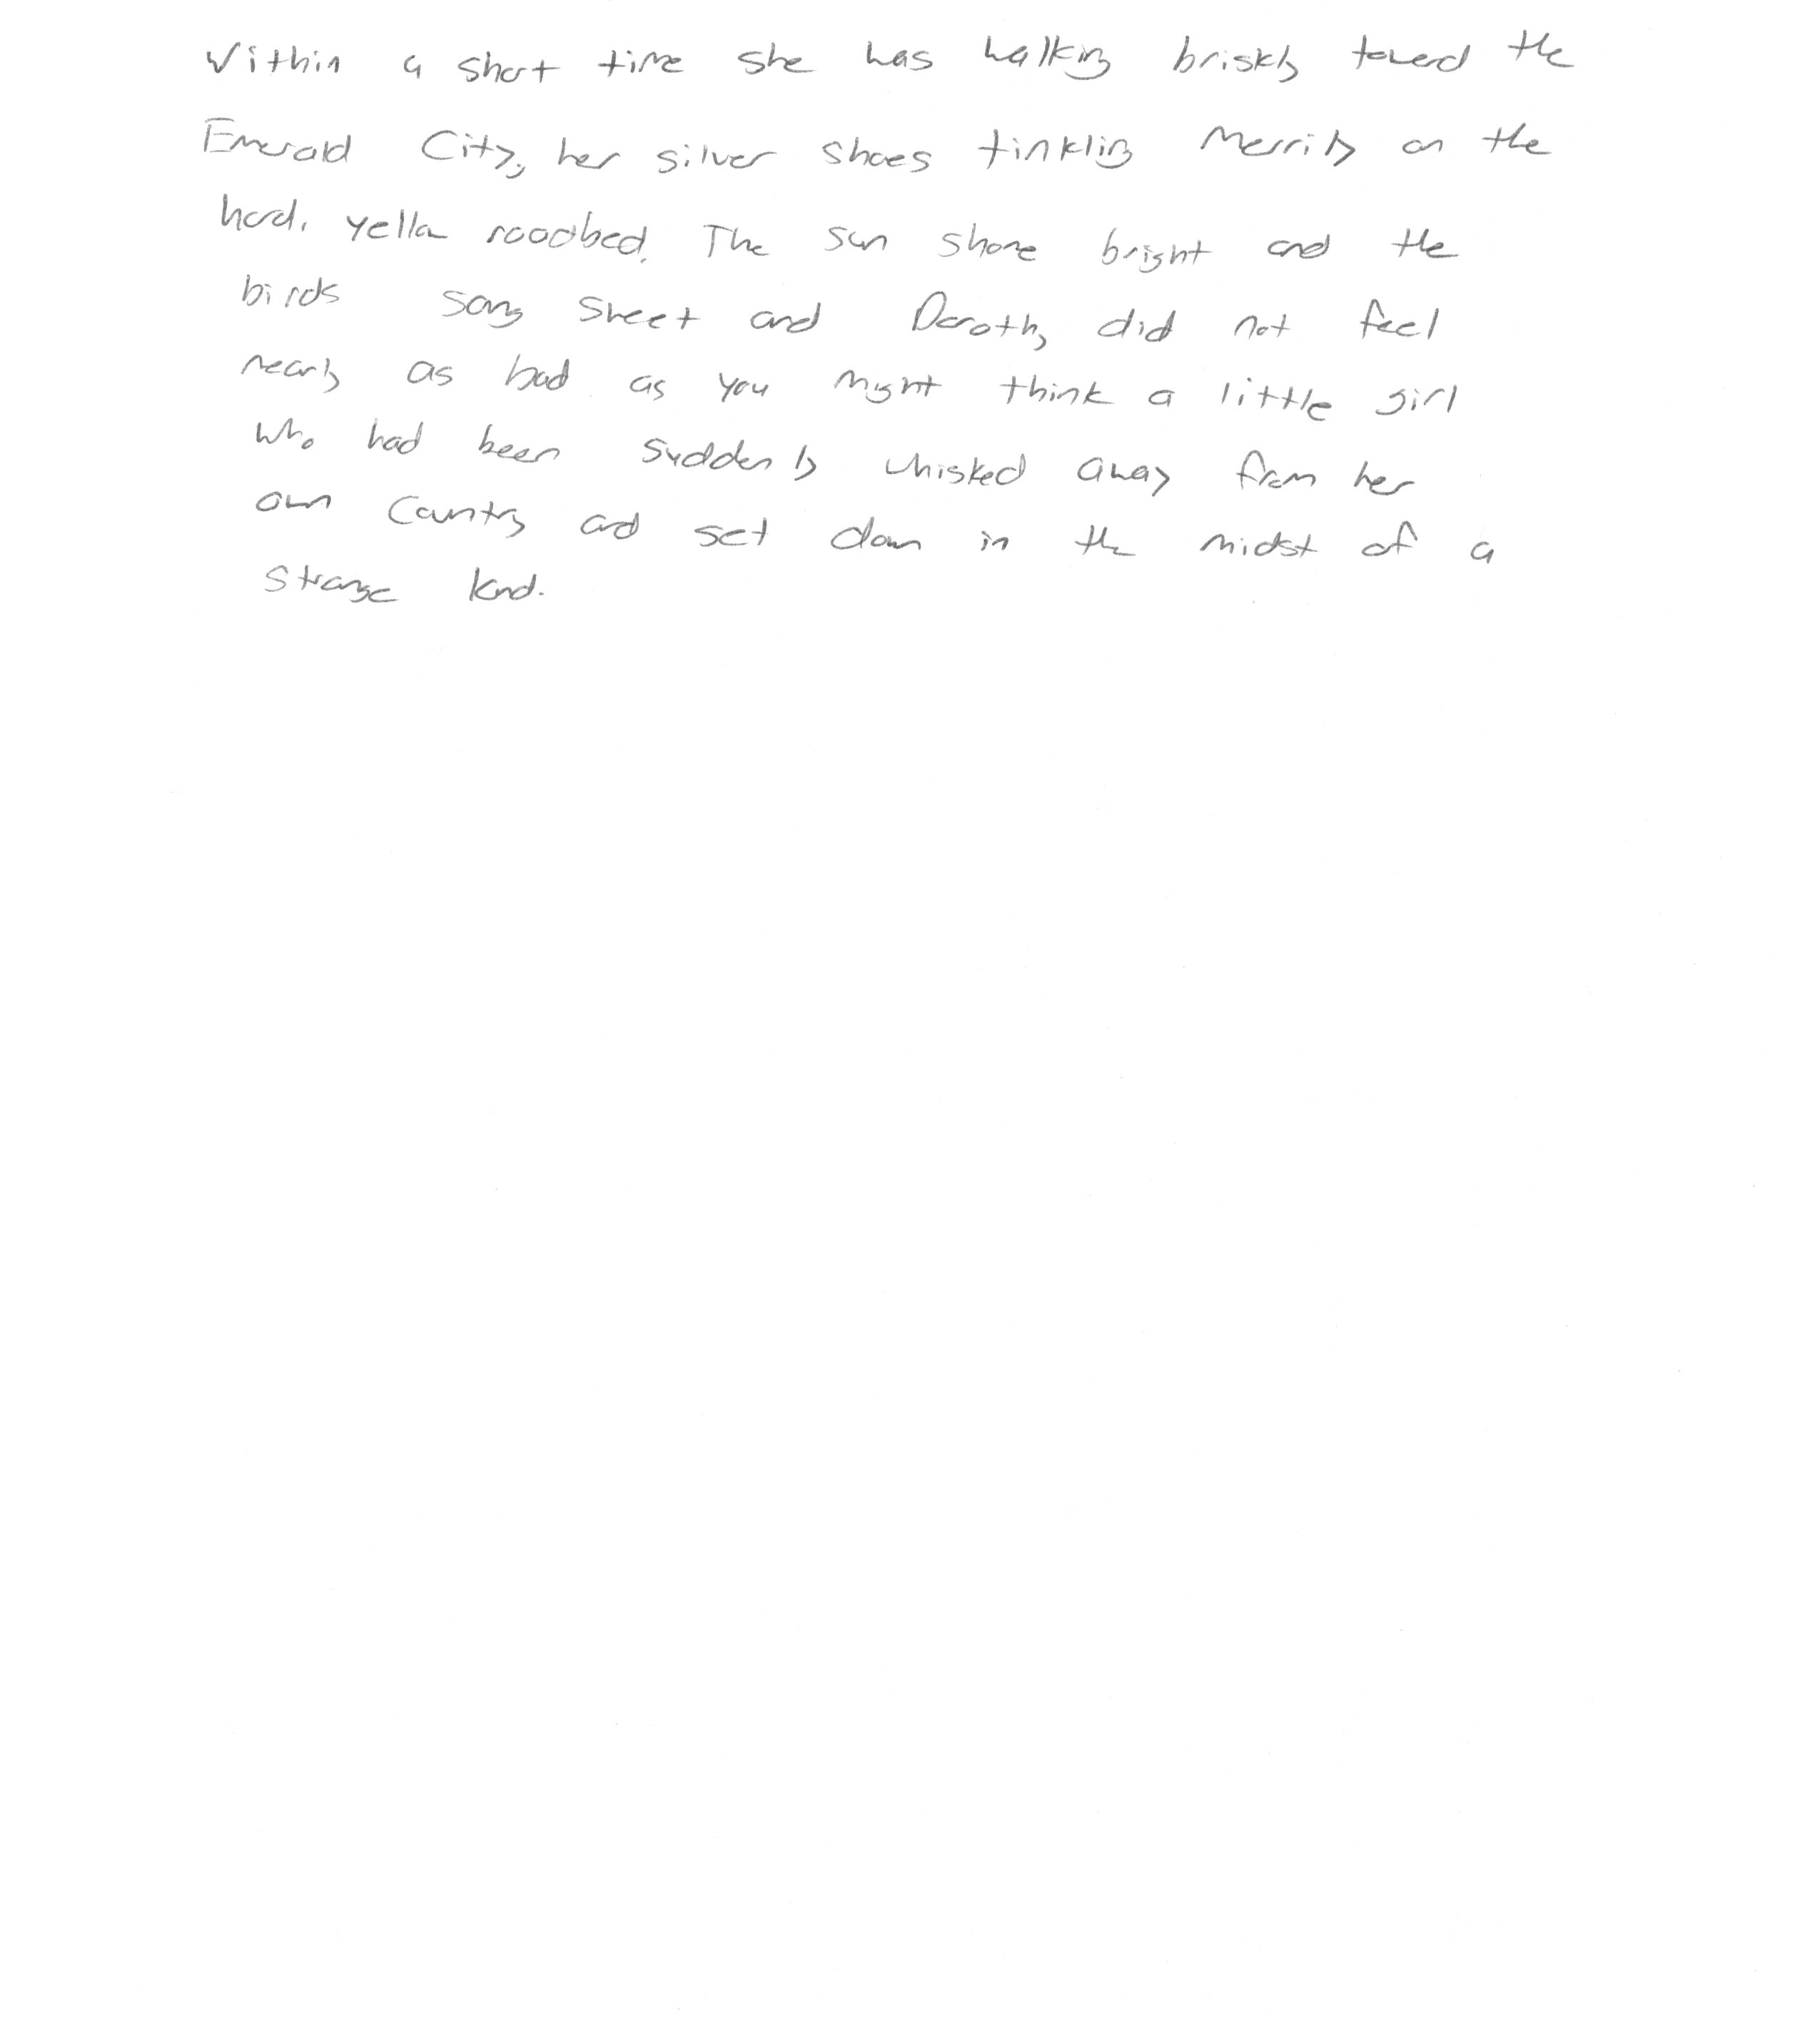 Within a short time she was walking briskly toward the
Emerald City, her silver shoes tinkling merrily on the
hard, yellow roadbed. The sun shone bright and the
birds sang sweet and Dorothy did not feel
nearly as bad as you might think a little girl
who had been suddenly whisked away from her
own country and set down in the midst of a
strange land.